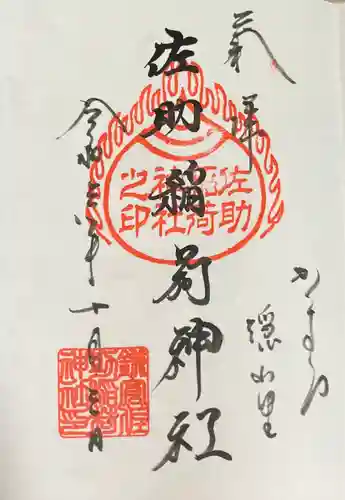 奉拝
かまくら
隠れ里
佐助稲荷神社
佐助
稲荷
神社
之印
鎌倉佐
助稲荷
神社印
令和 年 十月 日